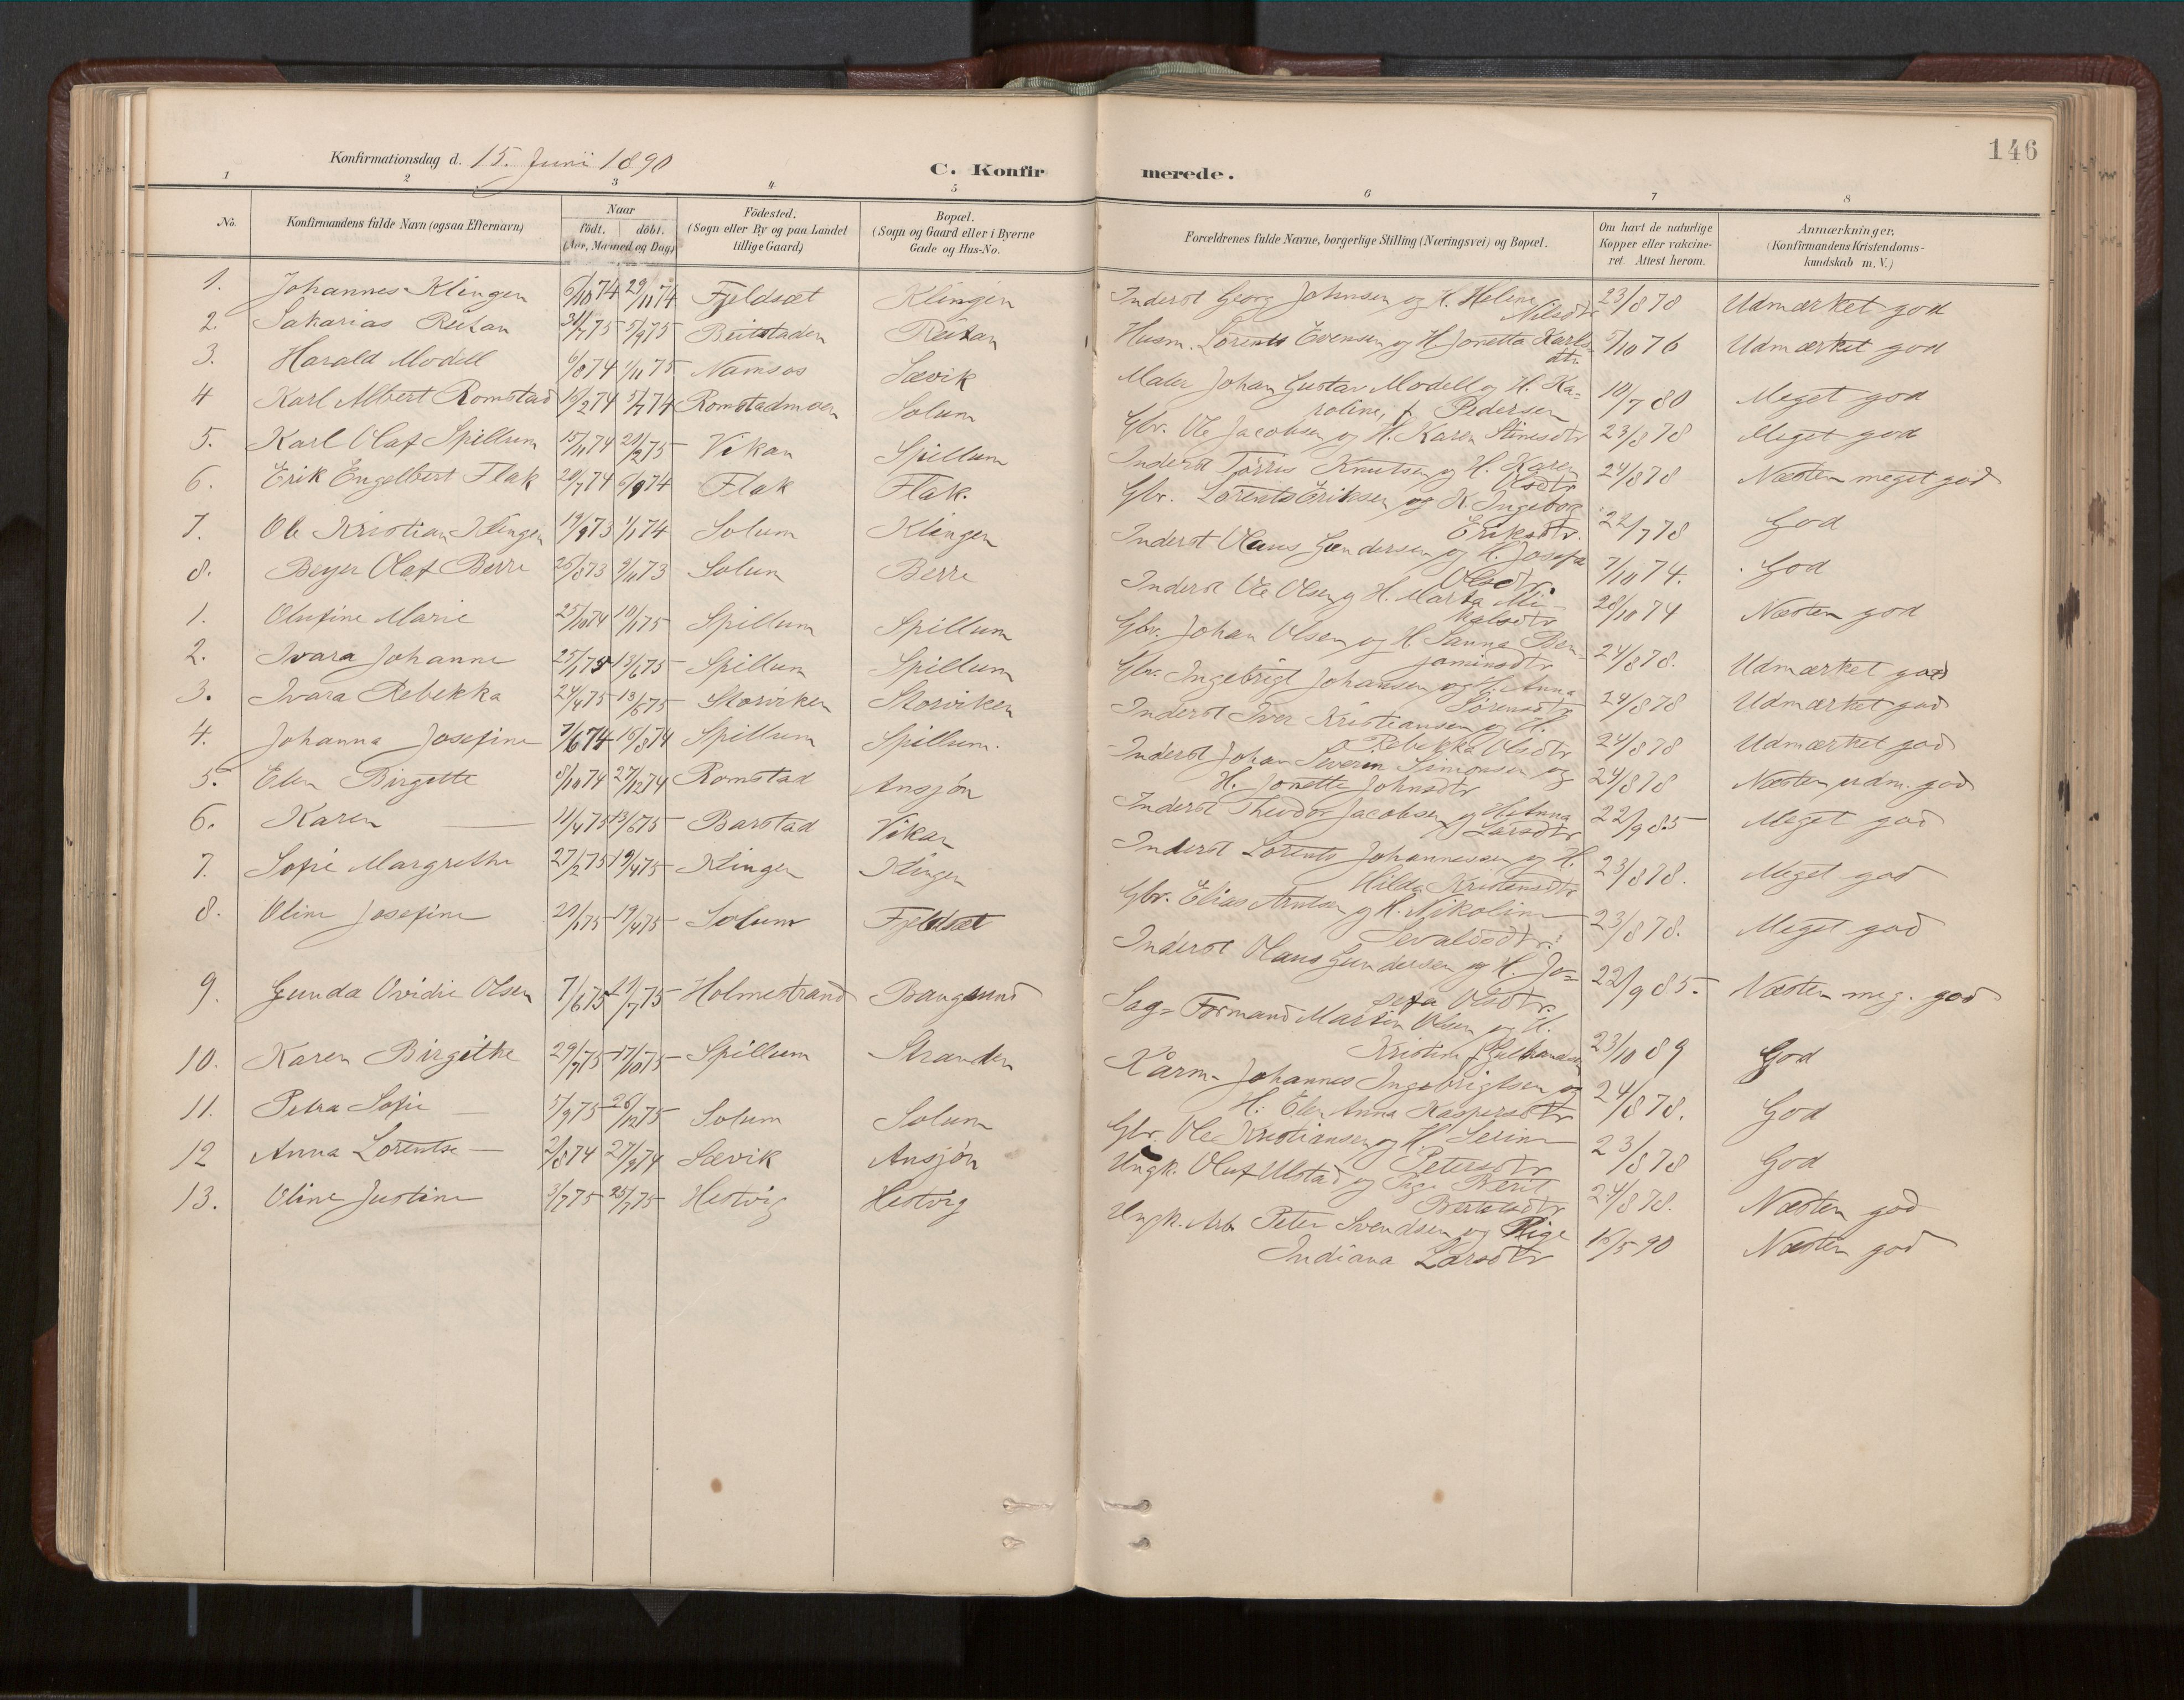 146
Konfirmationsdag d. 15. Juni 1890
C. Konfirmerede.
1 2 3 4 5 6 7 8
No. Konfirmandens fulde Navn (ogsaa Efternavn) Naar födt. döbt. (Aar, Maaned og Dag) Födested. (Sogn eller By og paa Landet tillige Gaard) Bopæl. (Sogn og Gaard eller i Byerne Gade og Hus-No. Forældrenes fulde Navne, borgerlige Stilling (Næringsvei) og Bopæl. Om havt de naturlige Kopper eller vakcineret. Attest herom. Anmærkninger. (Konfirmandens Kristendomskundskab m. V.)
1. Johannes Klingen 6/10 74 29/11 74 Fjeldsæt Klingen Inderst Georg Johnsen og H. Helene Nilsdtr 23/8 78 Udmærket god
2. Sakarias Reitan 31/7 75 5/9 75 Beitstaden Reitan Husm. Lorents Evensen og H. Jonetta Karlsdtr 5/10 76 Udmærket god
3. Harald Modell 6/8 74 1/11 75 Namsos Sævik Maler Johan Gustav Modell og H. Karoline, f. Pedersen 10/7 80 Meget god
4 Karl Albert Romstad 16/2 74 5/7 74 Romstadmoen Solum Gbr. Ole Jacobsen og H. Karen Stinesdtr 23/8 78 Meget god
5. Karl Olaf Spillum 15/11 74 21/2 75 Vikan Spillum Inderst Törris Knutsen og H. Karen Olsdtr 24/8 78 Næsten meget god
6. Erik Engelbert Flak 20/7 74 6/9 74 Flak Flak. Gbr. Lorents Eriksen og H. Ingeborg Eriksdtr. 22/7 78 God
7. Ole Kristian Klingen 19/9 73 1/1 74 Solum Klingen Inderst Olaus Gundersen og H. Josefa Olsdtr. 7/10 74. God
8. Beyer Olaf Berre 26/8 73 9/11 73 Solum Berre Inderst Ole Olsen og H. Marta Mikalsdtr 28/10 74 Næsten god
1. Olufine Marie 25/10 74 10/1 75 Spillum Spillum Gbr. Johan Olsen og H. Sanna Benjaminsdtr 24/8 78. Udmærket god
2. Ivara Johanne 25/1 75 13/6 75 Spillum Spillum Gbr. Ingebrigt Johansen og H. Anna Sörensdtr 24/8 78 Udmærket god
3. Ivara Rebekka 24/4 75 13/6 75 Storviken Storviken Inderst Iver Kristiansen og H. Rebekka Olsdtr 24/8 78 Udmærket god
4. Johanna Josefine 7/6 74 16/8 74 Spillum Spillum. Inderst Johan Severin Simonsen og H. Jonette Johnsdtr 24/8 78 Næsten udm. god
5. Elen Birgitte 8/10 74 27/12 74 Romstad Ansjön Inderst Theodor Jacobsen og H. Anna Larsdtr 22/9 85 Meget god
6. Karen — 11/4 75 13/6 75 Barstad Vikan Inderst Lorents Johannessen og H. Hilda Kristensdtr 23/8 78. Meget god
7. Sofie Margrethe 27/2 75 19/4 75 Klingen Klingen Gbr. Elias Arntsen og H. Nikoline Sevaldsdtr. 23/8 78. Meget god
8. Oline Josefine 20/1 75 19/4 75 Solum Fjeldsæt Inderst Olaus Gundersen og H. Josefa Olsdtr. 22/9 85. Næsten meg. god
9. Gunda Ovidie Olsen 7/6 75 11/7 75 Holmestrand Bangsund Sag-Formand Martin Olsen og H. Kristine f. 23/10 89 God
10. Karen Birgitte 29/9 75 17/10 75 Spillum Stranden Kårm. Johannes Ingebrigtsen og H. Elen Anna Kaspersdtr 24/8 78. God
11. Petra Sofie — 5/9 75 26/12 75 Solum Solum Gbr. Ole Kristiansen og H. Serine Petersdtr 23/8 78 God
12 Anna Lorentse — 2/8 74 27/9 74 Sævik Ansjön Ungk. Oluf Ulstad og Pige Berit 24/8 78. Næsten god
13. Oline Justine 3/7 75 25/7 75 Hestvig Hestvig Ungk. Arb. Peter Svendsen og Pige Indiana Larsdtr 15/5 90 Næsten god